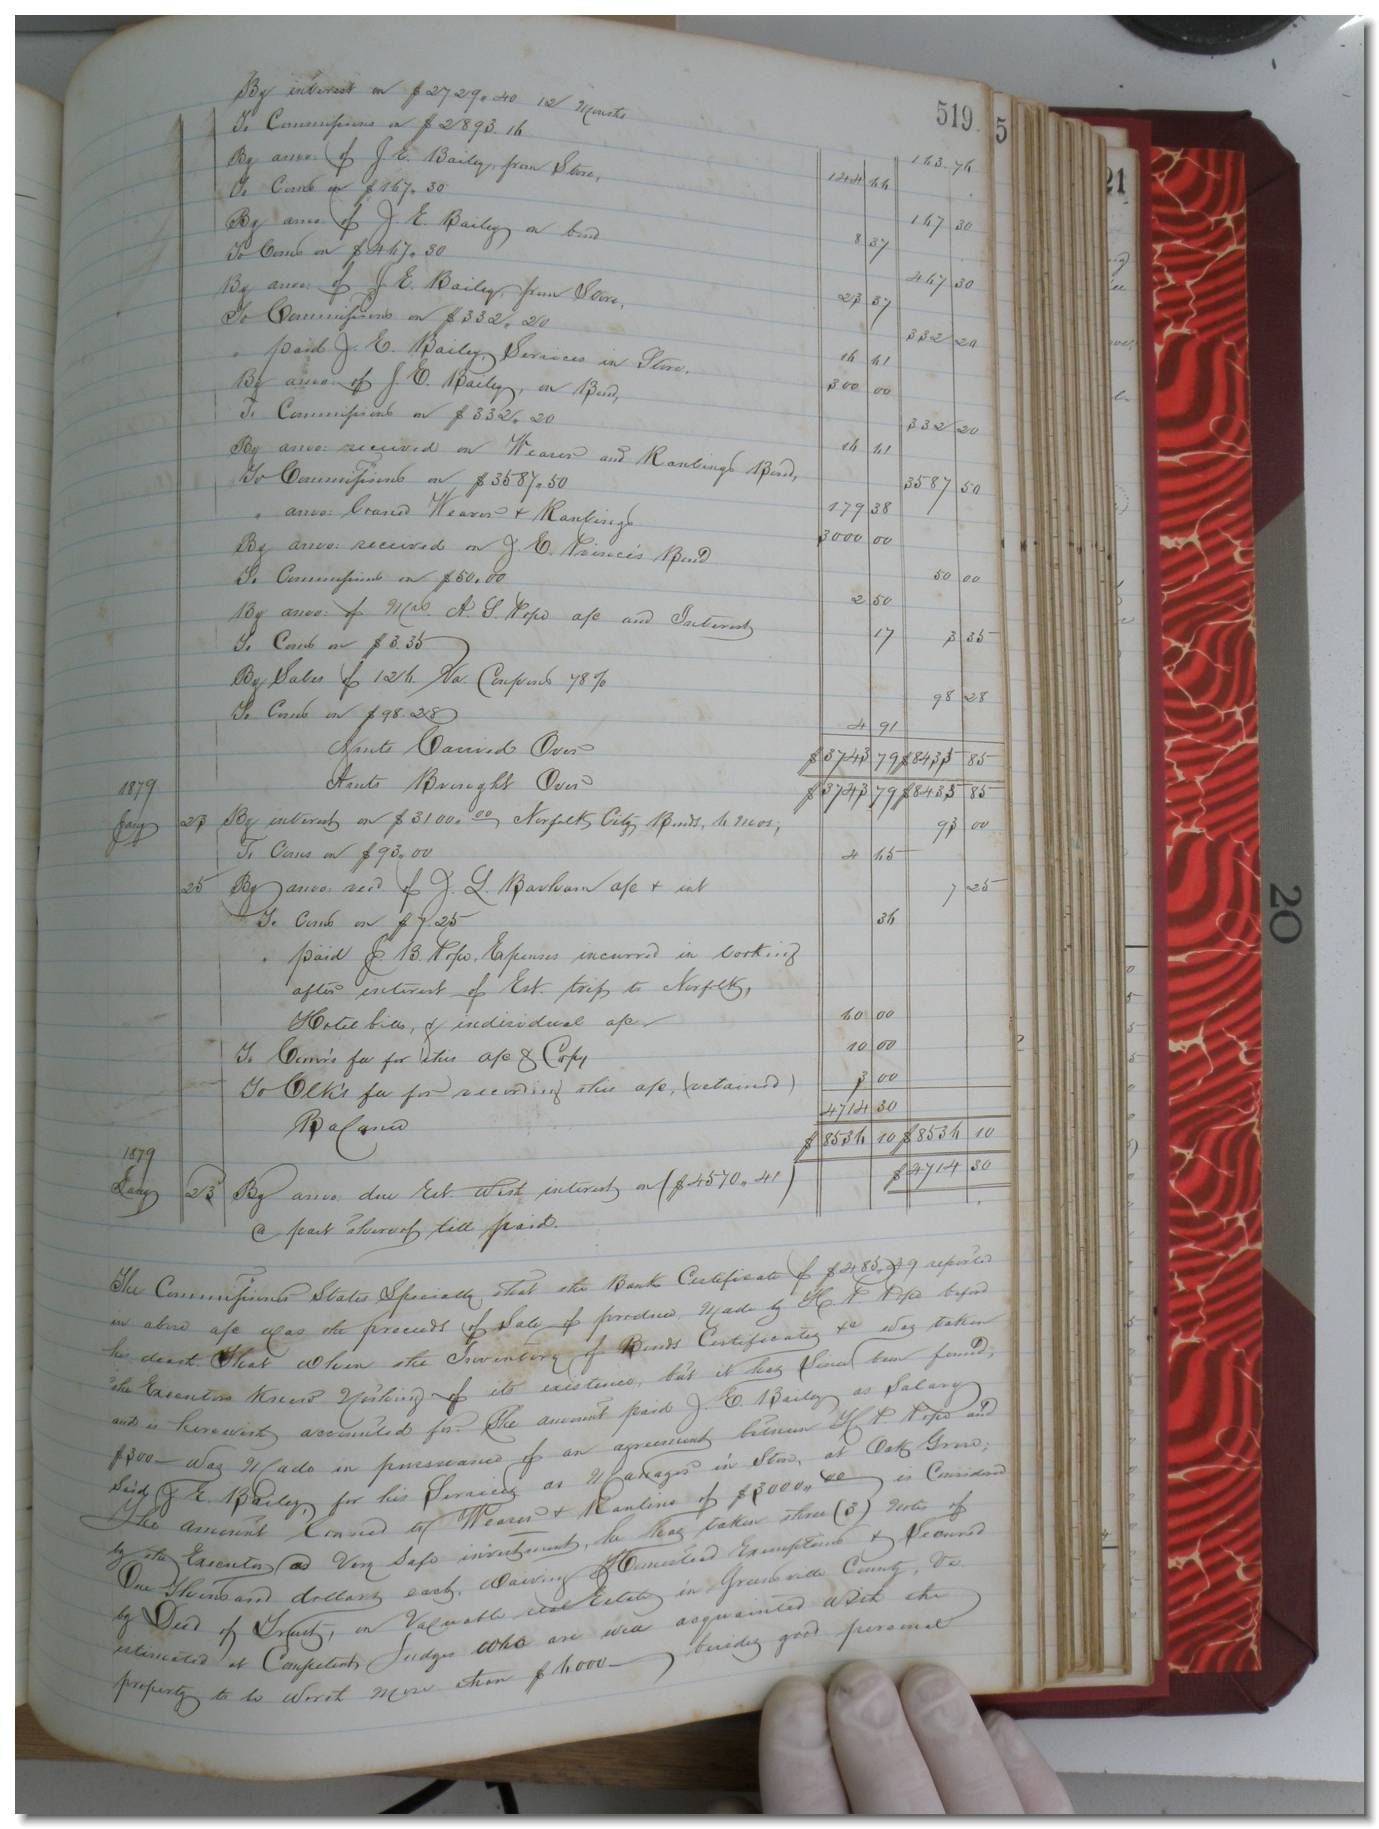 519
5
21
20
By interest on $2729.40 12 Months 163.76
To Commissions on $2893.16 144 66
By amo: of J. E. Bailey, from Store, 167 30
To Coms on $167.30 8 37
By amo: of J. E. Bailey on bond 467 30
To Coms on $467.30 23 37
By amo: of J. E. Bailey, from Store, 332 20
To Commissions on $332.20 16 61
" paid J. E. Bailey Services in Store, 300 00
By amo: of J. E. Bailey, on Bond, 332 20
To Commissions on $332.20 16 61
By amo: received on Weaver and Rawlings Bond, 3587 50
To Commissions on $3587.50 179 38
" amo: loaned Weaver & Rawlings 3000 00
By amo: received on J. E. Prince's Bond 50 00
To Commissions on $50.00 2 50
By amo: of Mrs. A. S. Pope a/c and Interest 3 35
To Coms on $3.35 17
By Sales of 126 Va. Coupons 78% 98 28
To Coms on $98.28 4 91
Amts Carried Over $3743 79 $8435 85
Amts Brought Over $3743 79 $8435 85
1879
Jany 23 By interest on $3100.00 Norfolk City Bonds, 6 mos, 93 00
To Coms on $93.00 4 65
25 By amo: recd of J. L. Barham a/c & int 7 25
To Coms on $7.25 36
" paid J. B. Pope, Expenses incurred in looking
after interest of Est. trip to Norfolk,
Hotel bills, & individual a/c 60 00
To Comr's fee for this a/c & Copy 10 00
To Clk's fee for recording this a/c, (retained) 3 00
Balance 4714 30
$8536 10 $8536 10
1879
Jany 23 By amo: due Est. with interest on ($4570.41) $4714 30
a part thereof till paid.
The Commissioner States Specially that the Bank Certificate of $485.29 reported
in above a/c was the proceeds of Sale of produce, Made by H. P. Pope before
his death. That when the Inventory of Bonds Certificates &c was taken
the Executor knew Nothing of its existence, but it has Since been found,
and is herewith accounted for. The amount paid J. E. Bailey as Salary
$300— was Made in pursuance of an agreement between H. P. Pope and
Said J. E. Bailey, for his Services as Manager in Store, at Oak Grove;
The amount loaned to Weaver & Rawlins of $3000.00 is Considered
by the Executor as Very Safe investment, he has taken three (3) Notes of
One Thousand dollars each, waiving Homestead Exemptions & Secured
by Deed of Trust, on Valuable real Estate in Greensville County, Va.
estimated at Competent Judges who are well acquainted with the
property to be worth more than $6000— besides good personal